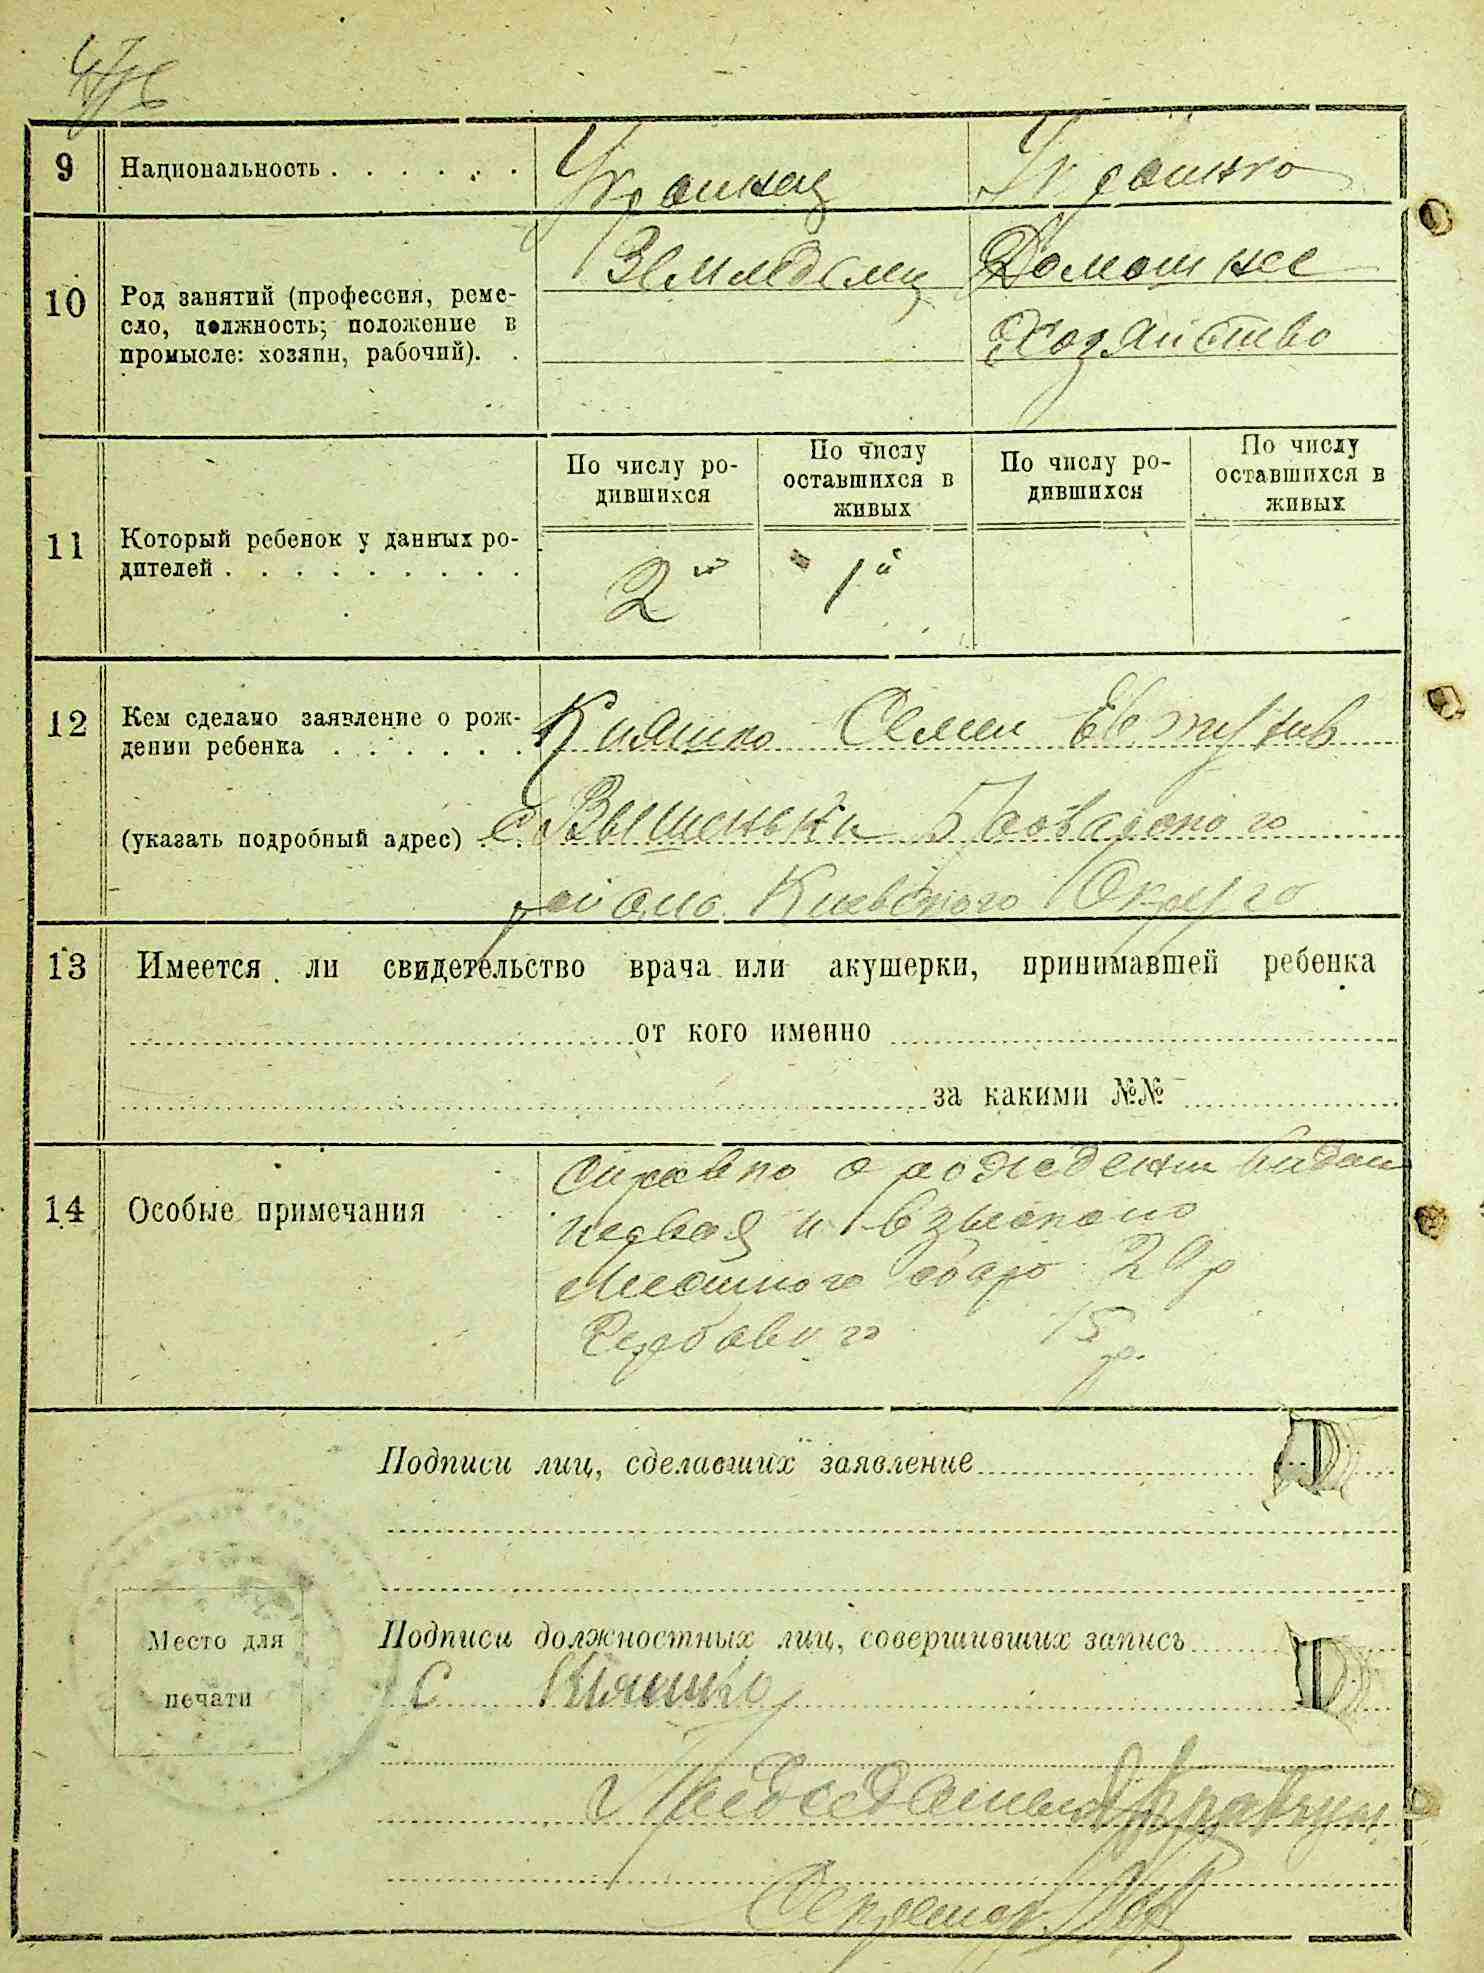 9 Национальность . . . . . . Украинец Украинка
10 Род занятий (профессия, реме-
сло, должность; положение в
промысле: хозяин, рабочий). .
Земледелец Домашнее
Хозяйство
11 Который ребенок у данных ро-
дителей . . . . . . . . .
По числу ро-
дившихся
По числу
оставшихся в
живых
По числу ро-
дившихся
По числу
оставшихся в
живых
2й "1й
12 Кем сделано заявление о рож-
дении ребенка . . . . . . Кияшко Семен
(указать подробный адрес) . . с Вышеньки Броварского
района Киевского Округа
13 Имеется ли свидетельство врача или акушерки, принимавшей ребенка
от кого именно
за какими №№
14 Особые примечания
о рождении
первая и взыскано
Местного сбора 20 р
Гербового 15 р.
Подписи лиц, сделавших заявление
Место для
печати
Подписи должностных лиц, совершивших запись
С Кияшко
Председатель
Секретарь